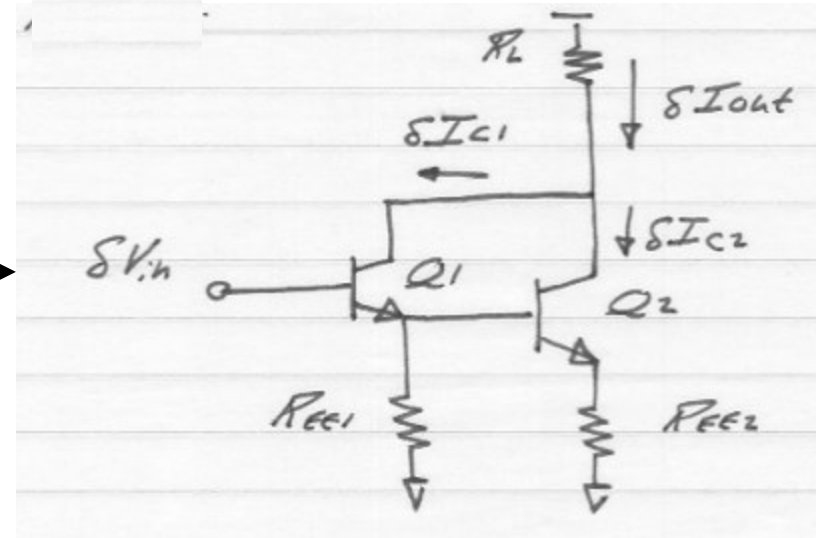 RL
δIout
δIC1
δIC2
δVin
Q1
Q2
REE1
REE2